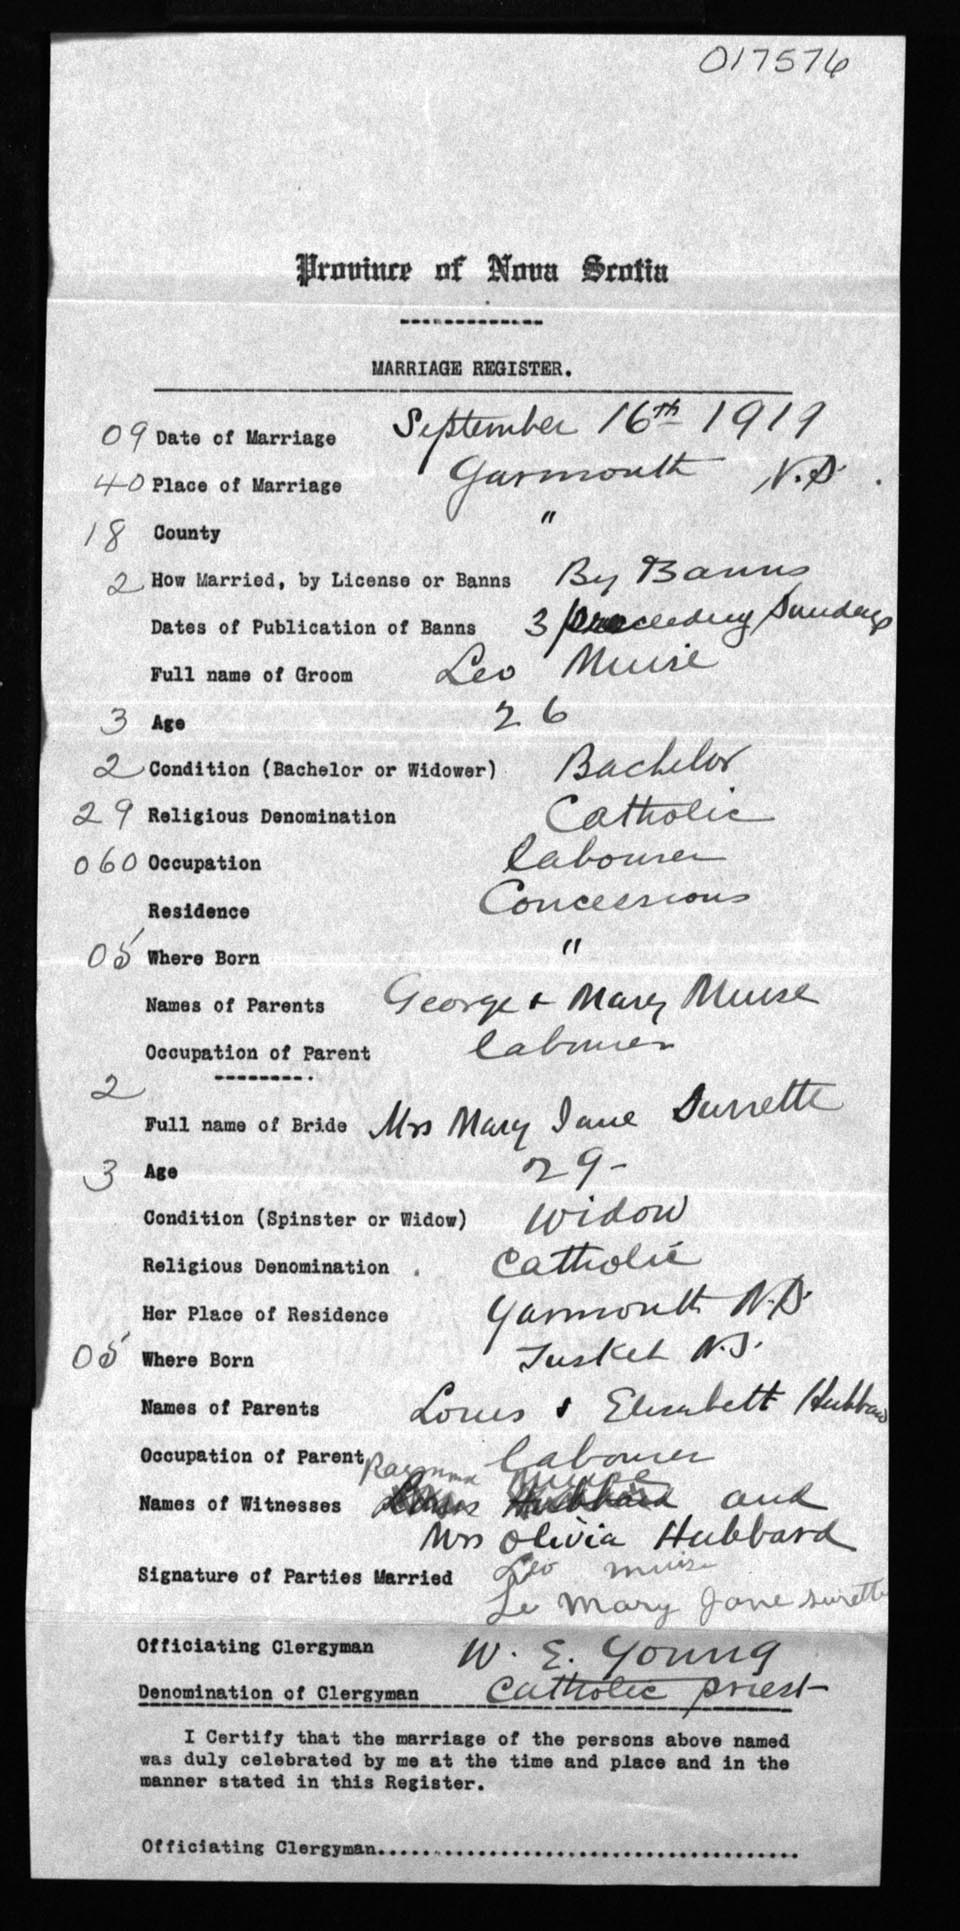 017576
Province of Nova Scotia
MARRIAGE REGISTER.
09 Date of Marriage September 16th 1919
40 Place of Marriage Yarmouth N.S.
18 County "
2 How Married, by License or Banns By Banns
Dates of Publication of Banns 3 preceeding Sundays
Full name of Groom Leo Muise
3 Age 26
2 Condition (Bachelor or Widower) Bachelor
29 Religious Denomination Catholic
060 Occupation labourer
Residence Concessions
05 Where Born "
Names of Parents George & Mary Muise
Occupation of Parent labourer
2
Full name of Bride Mrs Mary Jane Surrette
3 Age 29-
Condition (Spinster or Widow) Widow
Religious Denomination. Catholic
Her Place of Residence Yarmouth N.S.
05 Where Born Tusket N.S.
Names of Parents Louis & Elizabeth Hubbard
Occupation of Parent labourer
Muise
Names of Witnesses Louis Hubbard and
Mrs Olivia Hubbard
Signature of Parties Married Leo muise
Le Mary Jane surette
Officiating Clergyman W. E. Young
Denomination of Clergyman Catholic priest
I Certify that the marriage of the persons above named
was duly celebrated by me at the time and place and in the
manner stated in this Register.
Officiating Clergyman